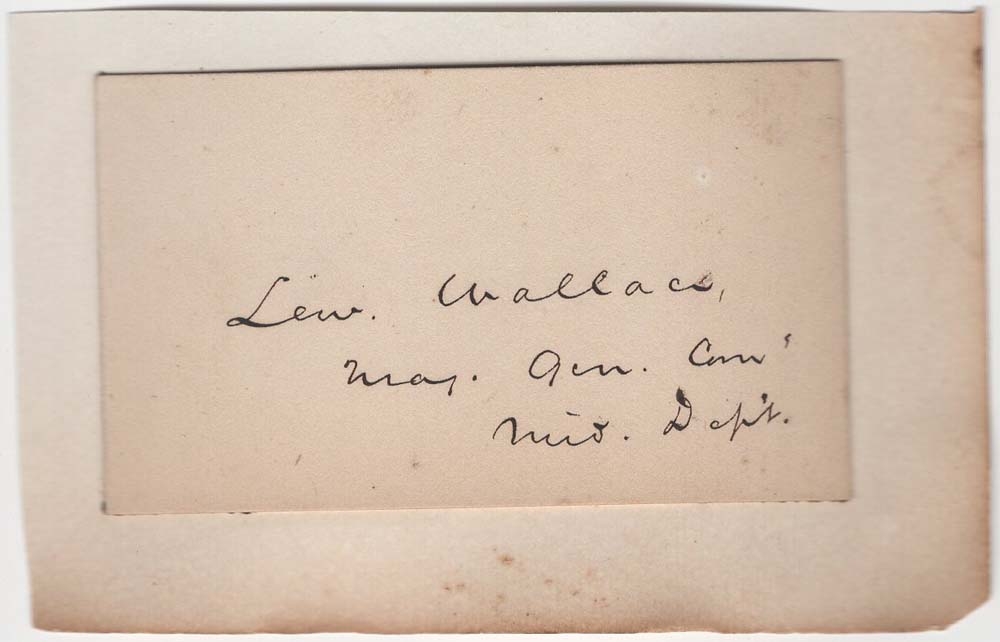 Lew. Wallace,
Maj. Gen. Com'
Mid. Dept.